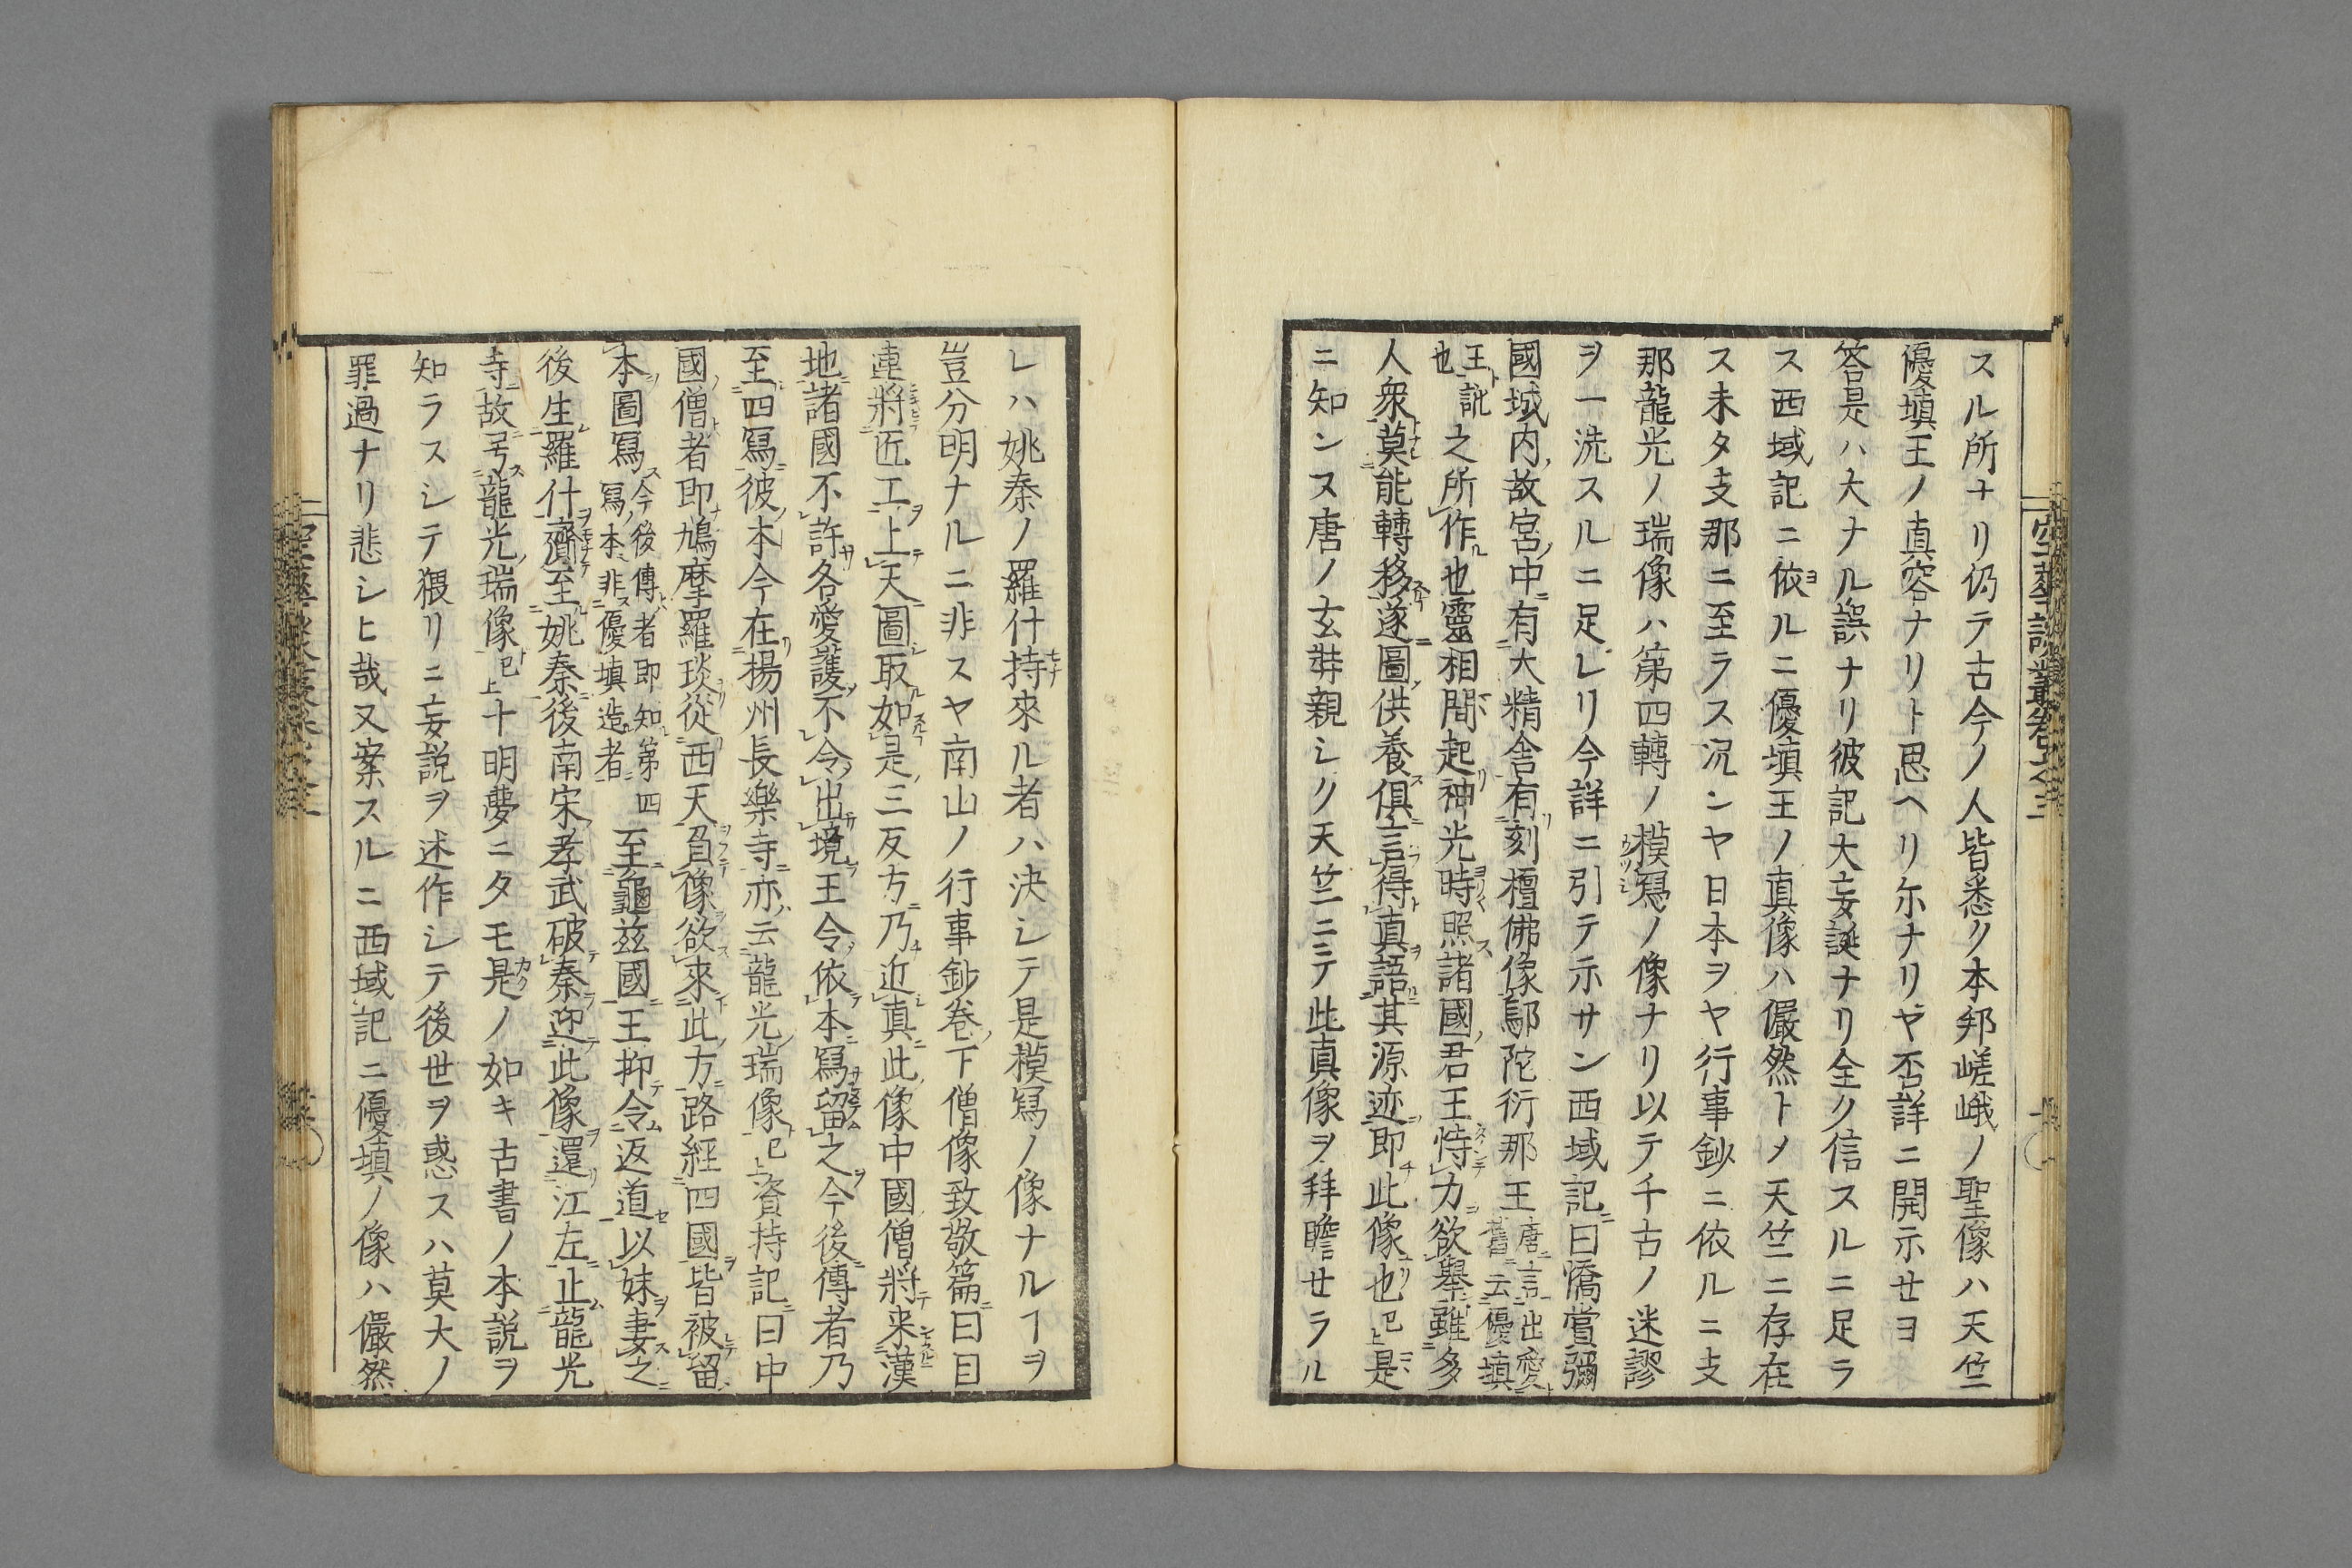 スル所ナリ仍テ古今ノ人皆悉ク本邦嵯峨ノ聖像ハ天竺
優塡王ノ真容ナリト思ヘリ尓ナリヤ否詳ニ開示セヨ
答是ハ大ナル誤ナリ彼記大妄誕ナリ全ク信スルニ足ラ
ス西域記ニ依ルニ優塡王ノ真像ハ儼然トメ天竺ニ存在
ス未タ支那ニ至ラス况ンヤ日本ヲヤ行事鈔ニ依ルニ支
那龍光ノ瑞像ハ第四轉ノ模冩ノ像ナリ以テ千古ノ迷謬
ヲ一洗スルニ足レリ今詳ニ引テ示サン西域記曰憍賞彌
國城内故宮中有大精舍有刻檀佛像鄔陀衍那王唐言出愛舊云優塡
王訛也之所作也靈相間起神光時照諸國君王恃力欲舉雖多
人衆莫能轉移遂圖供養俱言得真語其源迹即此像也已上是
ニ知ンヌ唐ノ玄弉親シク天竺ニテ此真像ヲ拜瞻セラル
レハ姚秦ノ羅什持來ル者ハ决シテ是模冩ノ像ナルヿヲ
豈分明ナルニ非スヤ南山ノ行事鈔卷下僧像致敬篇曰目
連將匠工上天圖取如是三反方乃近真此像中國僧將来漢
地諸國不許各愛護不令出境王令依本冩留之今後傳者乃
至四冩彼本今在揚州長樂寺亦云龍光瑞像已上資持記曰中
國僧者即鳩摩羅琰從西天負像欲來此方路經四國皆被留
本圖冩今後傳者即知第四冩本非優塡造者至龜茲國王抑令返道以妹妻之
後生羅什齎至姚秦後南宋孝武破秦迎此像還江左止龍光
寺故号龍光瑞像已上十明夢ニタモ是ノ如キ古書ノ本説ヲ
知ラスシテ猥リニ妄説ヲ述作シテ後世ヲ惑スハ莫大ノ
罪過ナリ悲シヒ哉又案スルニ西域記ニ優塡ノ像ハ儼然